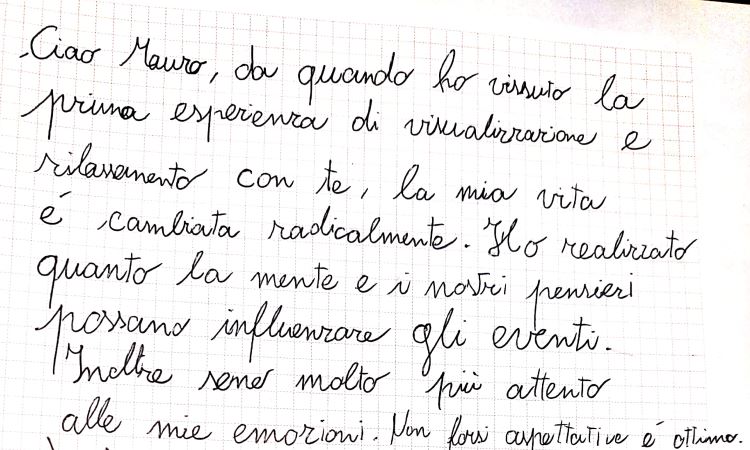 Ciao Mauro, da quando ho vissuto la
prima esperienza di visualizzazione e
rilassamento con te, la mia vita
é cambiata radicalmente. Ho realizzato
quanto la mente e i nostri pensieri
possano influenzare gli eventi.
Inoltre sono molto più attento
alle mie emozioni. Non farsi aspettative é ottimo.